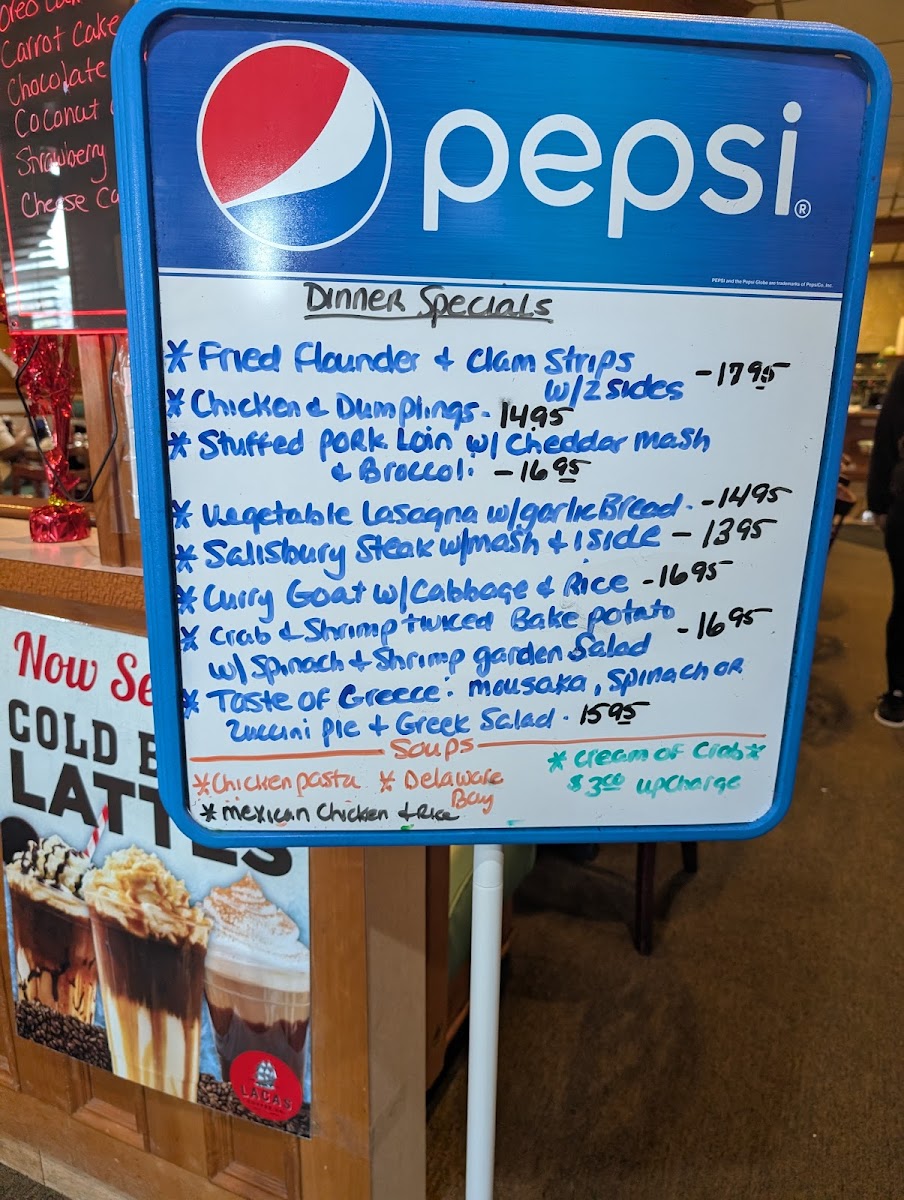 Carrot Cake
Chocolate
Coconut
Strawberry
Cheese Ca
pepsi®
PEPSI and the Pepsi Globe are trademarks of PepsiCo, Inc.
Dinner Specials
* Fried Flounder & Clam Strips
w/2 sides - 17 95
* Chicken & Dumplings - 14.95
* Stuffed Pork Loin w/ Cheddar mash
& Broccoli - 16 95
* Vegetable Lasagna w/garlic Bread - 14 95
* Salisbury Steak w/mash + 1 side - 13 95
* Curry Goat w/Cabbage & Rice - 16 95
* Crab & Shrimp twiced Bake potato
w/ Spinach + Shrimp garden Salad - 16 95
* Taste of Greece: mousaka, Spinach or
Zuccini pie + Greek Salad - 15 95
Soups
* Chicken pasta * Delaware
Bay
* Cream of Crab *
$3.00 upcharge
* mexican Chicken & Rice
Now Se
COLD B
LATTES
LACAS